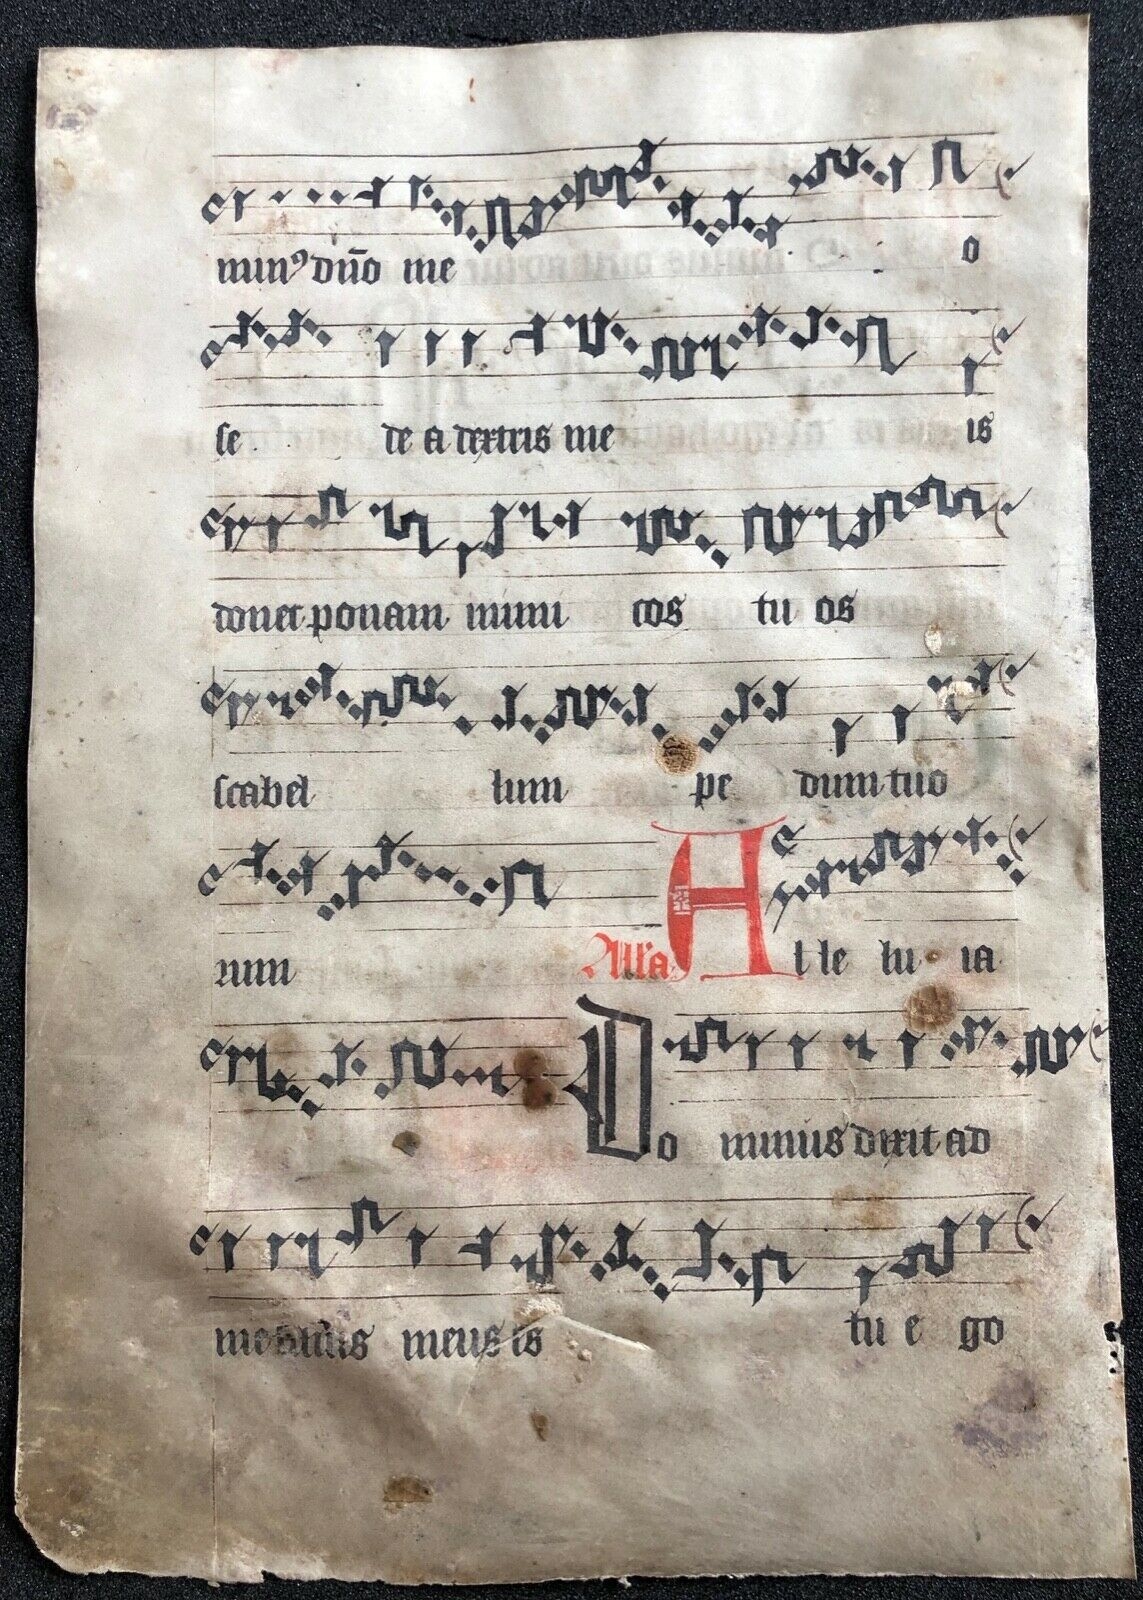 minꝰ dn̄o me o
se de a dextris me is
donec ponam inimi cos tu os
scabel lum pe dum tuo
rum All'a A l le lu ia
Do minus dixit ad
me filius meus es tu e go